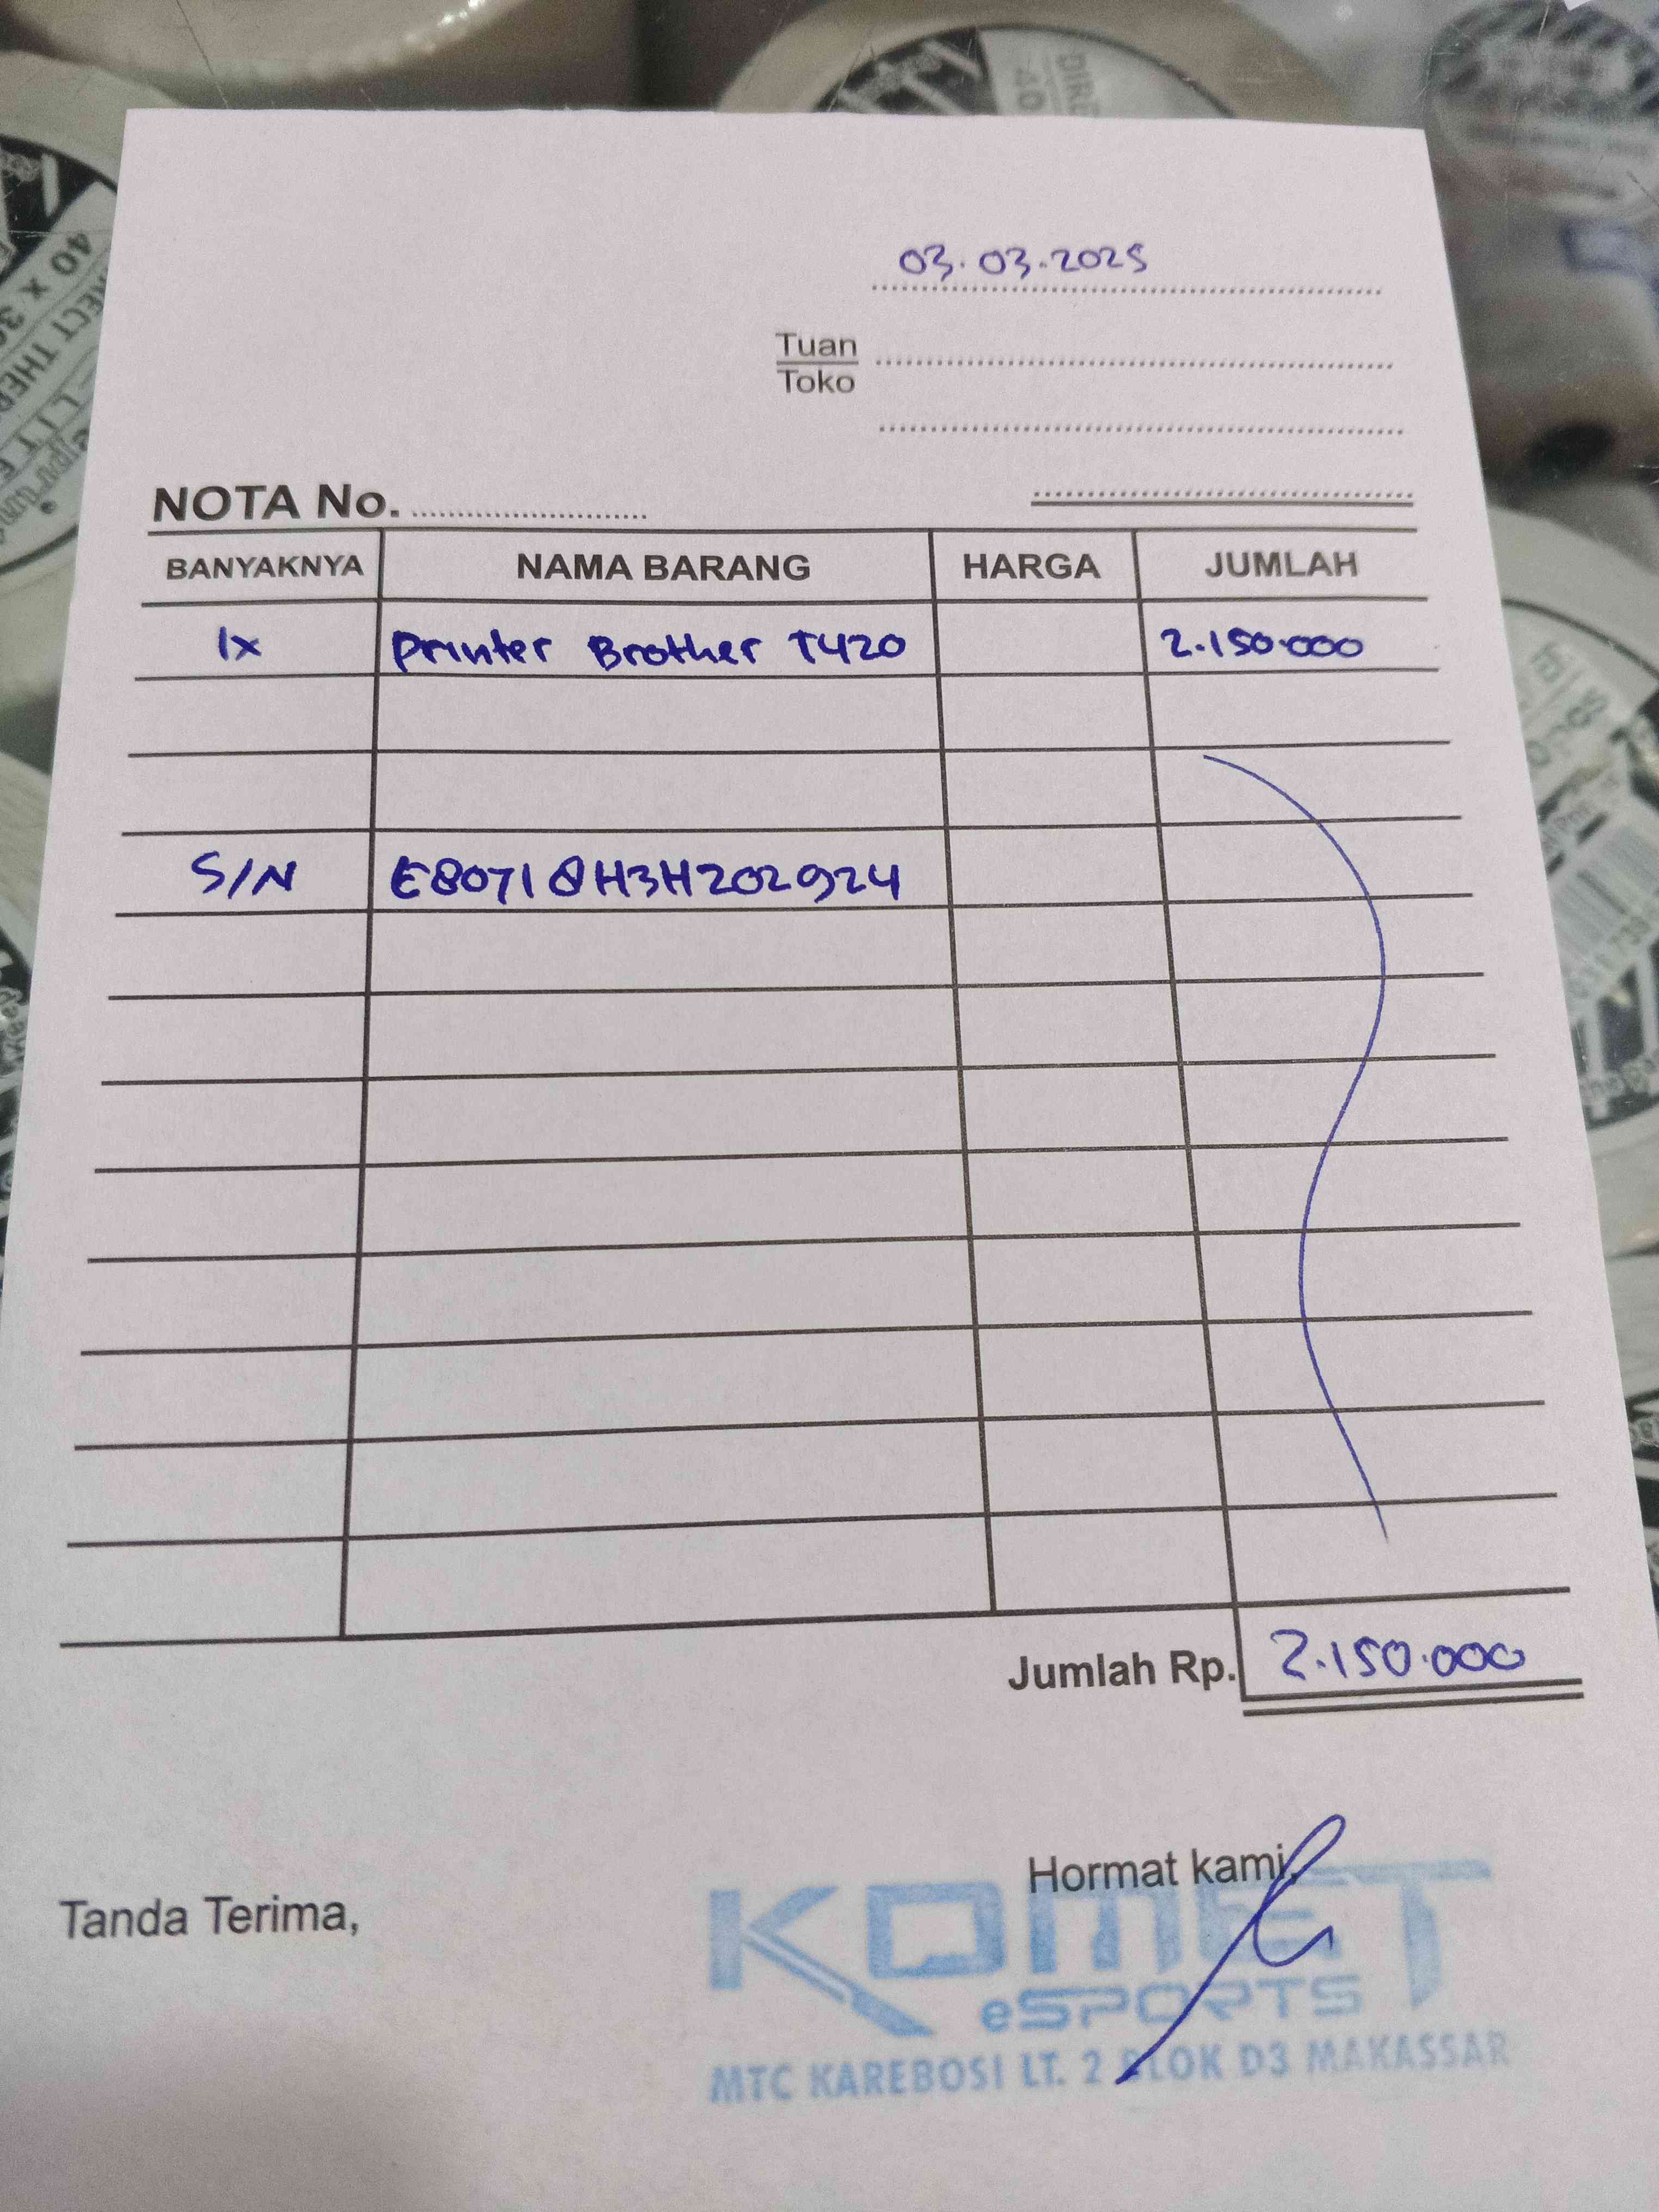 03.03.2025
Tuan
Toko
NOTA No.
BANYAKNYA NAMA BARANG HARGA JUMLAH
1x Printer Brother T420 2.150.000
S/N E80710H3H202924
Jumlah Rp. 2.150.000
Tanda Terima,
Hormat kami,
KOMET
eSPORTS
MTC KAREBOSI LT. 2 BLOK D3 MAKASSAR
40 X 30
DIRECT THER